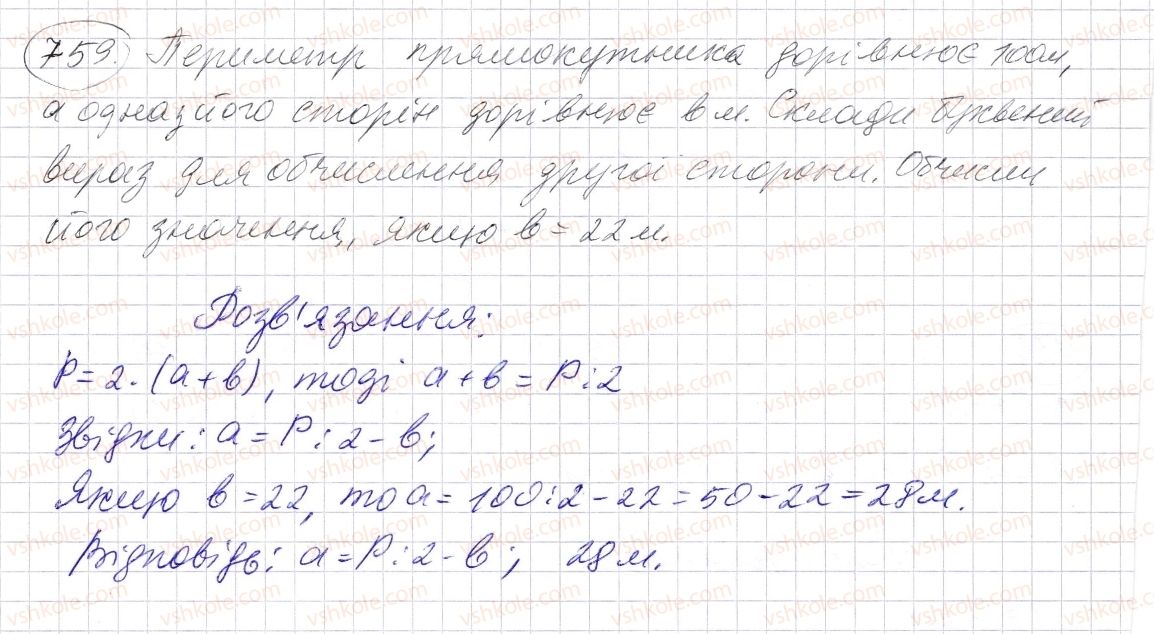 759. Периметр прямокутника дорівнює 100м,
а одна з його сторін дорівнює в м. Склади буквений
вираз для обчислення другої сторони. Обчисли
його значення, якщо в = 22 м.
Розв'язання:
P = 2 · (a + в), тоді a + в = P : 2
Звідки: a = P : 2 - в;
Якщо в = 22, то a = 100 : 2 - 22 = 50 - 22 = 28 м.
Відповідь: a = P : 2 - в; 28 м.